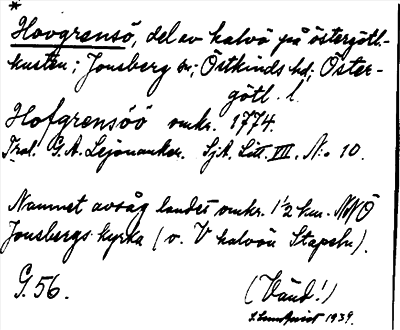 *
Hovgrensö, del av halvö på östergötl.-
kusten; Jonsberg sn; Östkinds hd; Öster-
götl. l.
Hofgrensöö omkr. 1774.
Trol. G. A. Lejonancker. SjA, Litt. III. N:o 10.
Namnet avsåg landet omkr. 1 1/2 km. NNO
Jonsbergs kyrka (v. V halvön Stapeln).
G. 56.
(Vänd!)
S. Lundqvist 1939.